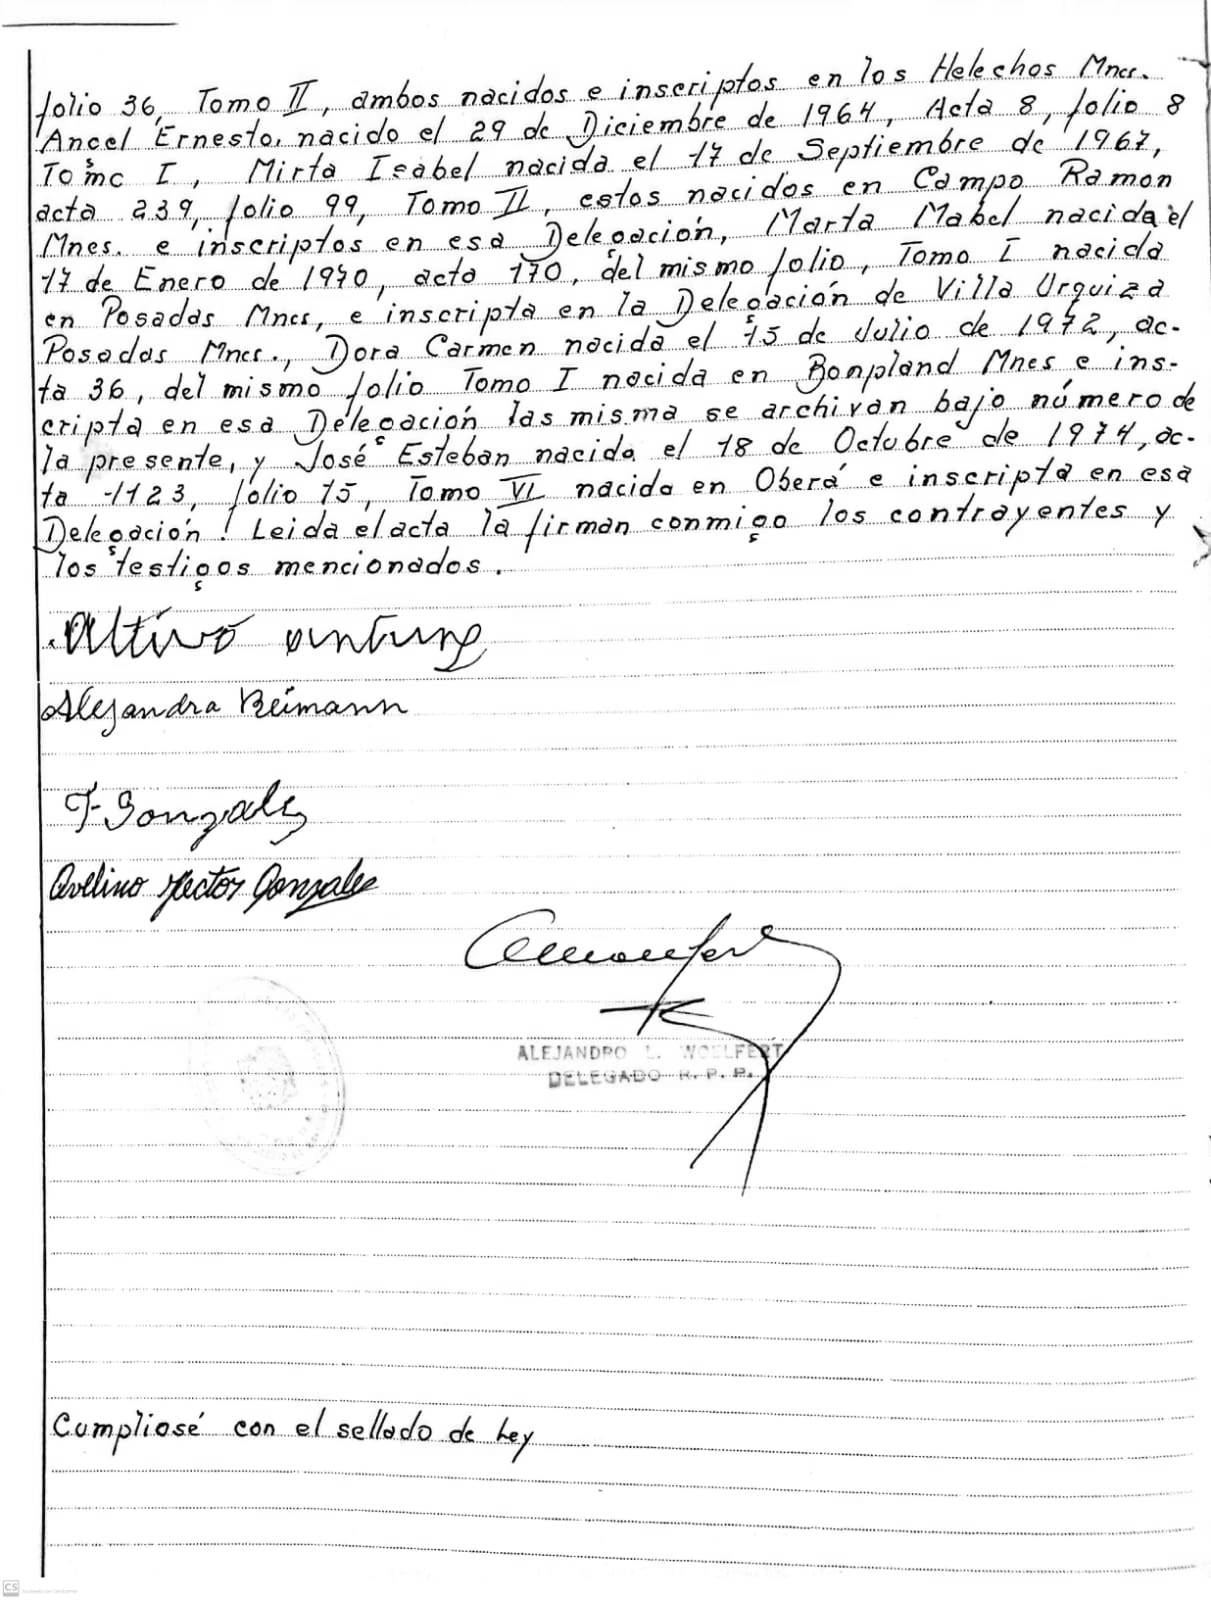 folio 36, Tomo II, ambos nacidos e inscriptos en los Helechos Mnes.
Angel Ernesto, nacido el 29 de Diciembre de 1964, Acta 8, folio 8
Tomo I, Mirta Isabel nacida el 17 de Septiembre de 1967,
acta 239, folio 99, Tomo II, estos nacidos en Campo Ramon
Mnes. e inscriptos en esa Delegación, Marta Mabel nacida el
17 de Enero de 1970, acta 170, del mismo folio, Tomo I nacida
en Posadas Mnes, e inscripta en la Delegación de Villa Urquiza
Posadas Mnes., Dora Carmen nacida el 15 de Julio de 1972, ac-
ta 36, del mismo folio Tomo I nacida en Bonpland Mnes e ins-
cripta en esa Delegación las misma se archivan bajo número de
la presente, y José Esteban nacido el 18 de Octubre de 1974, ac-
ta 1123, folio 15, Tomo VI nacido en Oberá e inscripta en esa
Delegación! Leida el acta la firman conmigo los contrayentes y
los testigos mencionados.
Altivo
Alejandra Reimann
F Gonzalez
Avelino Hector Gonzalez
ALEJANDRO L. WOELFERT
DELEGADO R. P. P.
Cumpliosé con el sellado de Ley
CS